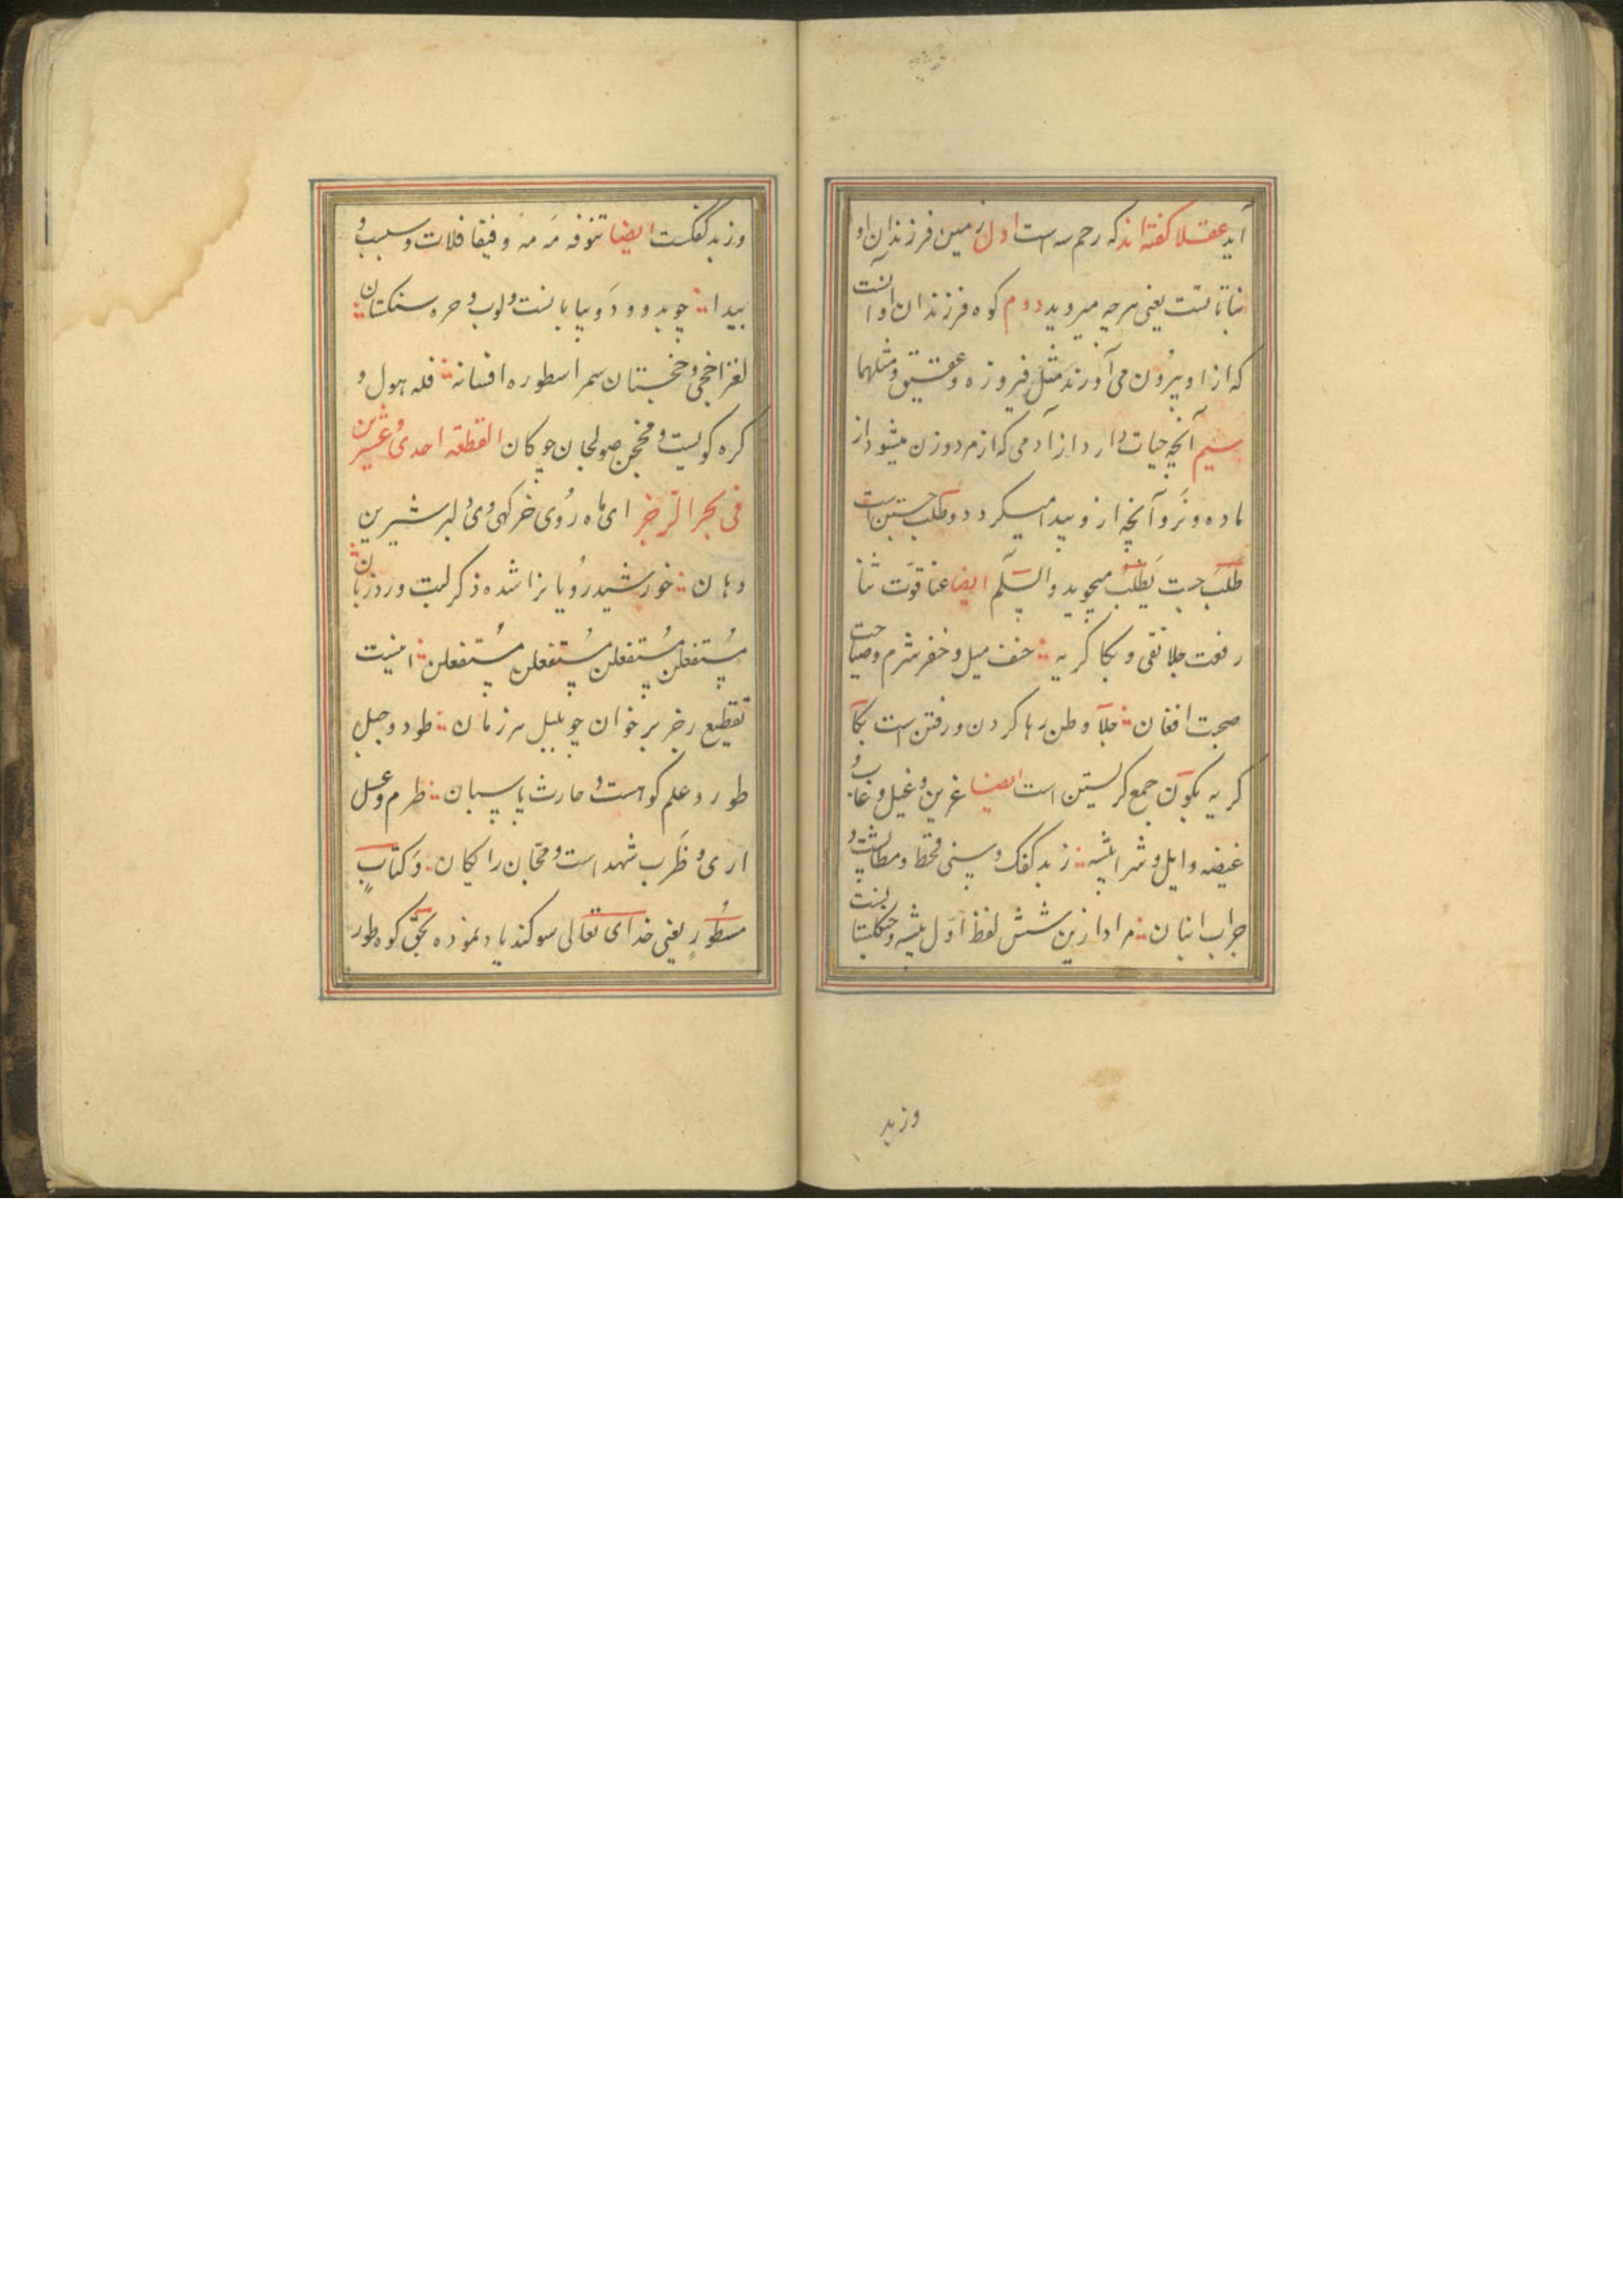 آید عقلا کفته‌اند که رحم سه است اول زمین فرزندان او
نباتاتست یعنی هرچه میروید دوم کوه فرزندان او آنست
که از او بیرون می آورند مثل فیروزه و عقیق و مثلهما
سیم آنچه حیات دارد از آدمی که از مرد و زن میشود از
ماده و نر و آنچه ازو پیدا میکردد و طلب جستن است
طلب جست یطلب میجوید والسلم ایضا عنا قوت ثنا
رفعت جلا نفی و بکا کریه حنف میل و خفر شرم و صیاحت
صجت افغان جلآ وطن رها کردن و رفتن است بکآ
کریه بکون جمع کریستن است ایضا غرین و غیل و غاب و
غیضه و ایل و شرا بیشه زبد کفک و سنی قحط و مطالبت و
جراب انبان مراد ازین شش لفظ اول بیشه و جنکلستانست
وزبد
وزبد کفکست ایضا تنوفه مه مه و فیفا فلات و سبسب و
بیدا چو بدو و دو بیابانست و لوب و حره سنکستان
لغز احجی و خجستان سمر اسطوره افسانه قله هول و
کره کویست و محجن صولجان چوکان القطعه احدی و عشرین
فی بحر الرجز ای ماه روی خرکهی وی دلبر شیرین
دهان خورشید رویانرا شده ذکر لبت ورد زبان
مستفعلن مستفعلن مستفعلن مستفعلن اینست
تقطیع رجز برخوان چو بلبل هر زمان طود و جبل
طور و علم کوهست و حارث پاسبان طرم و عسل
اری و ظرب شهد است و مجان رایکان وکتاب
مسطور یعنی خدای تعالی سوکند یاد نموده بحق کوه طور